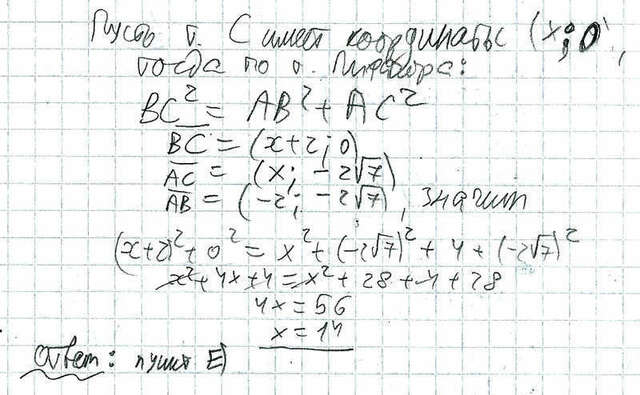 Пусть т. С имеет координаты (x; 0),
тогда по т. Пифагора:
BC² = AB² + AC²
BC = (x+2; 0)
AC = (x; -2√7)
AB = (-2; -2√7), значит
(x+2)² + 0² = x² + (-2√7)² + 4 + (-2√7)²
x² + 4x + 4 = x² + 28 + 4 + 28
4x = 56
x = 14
Ответ: пункт E)